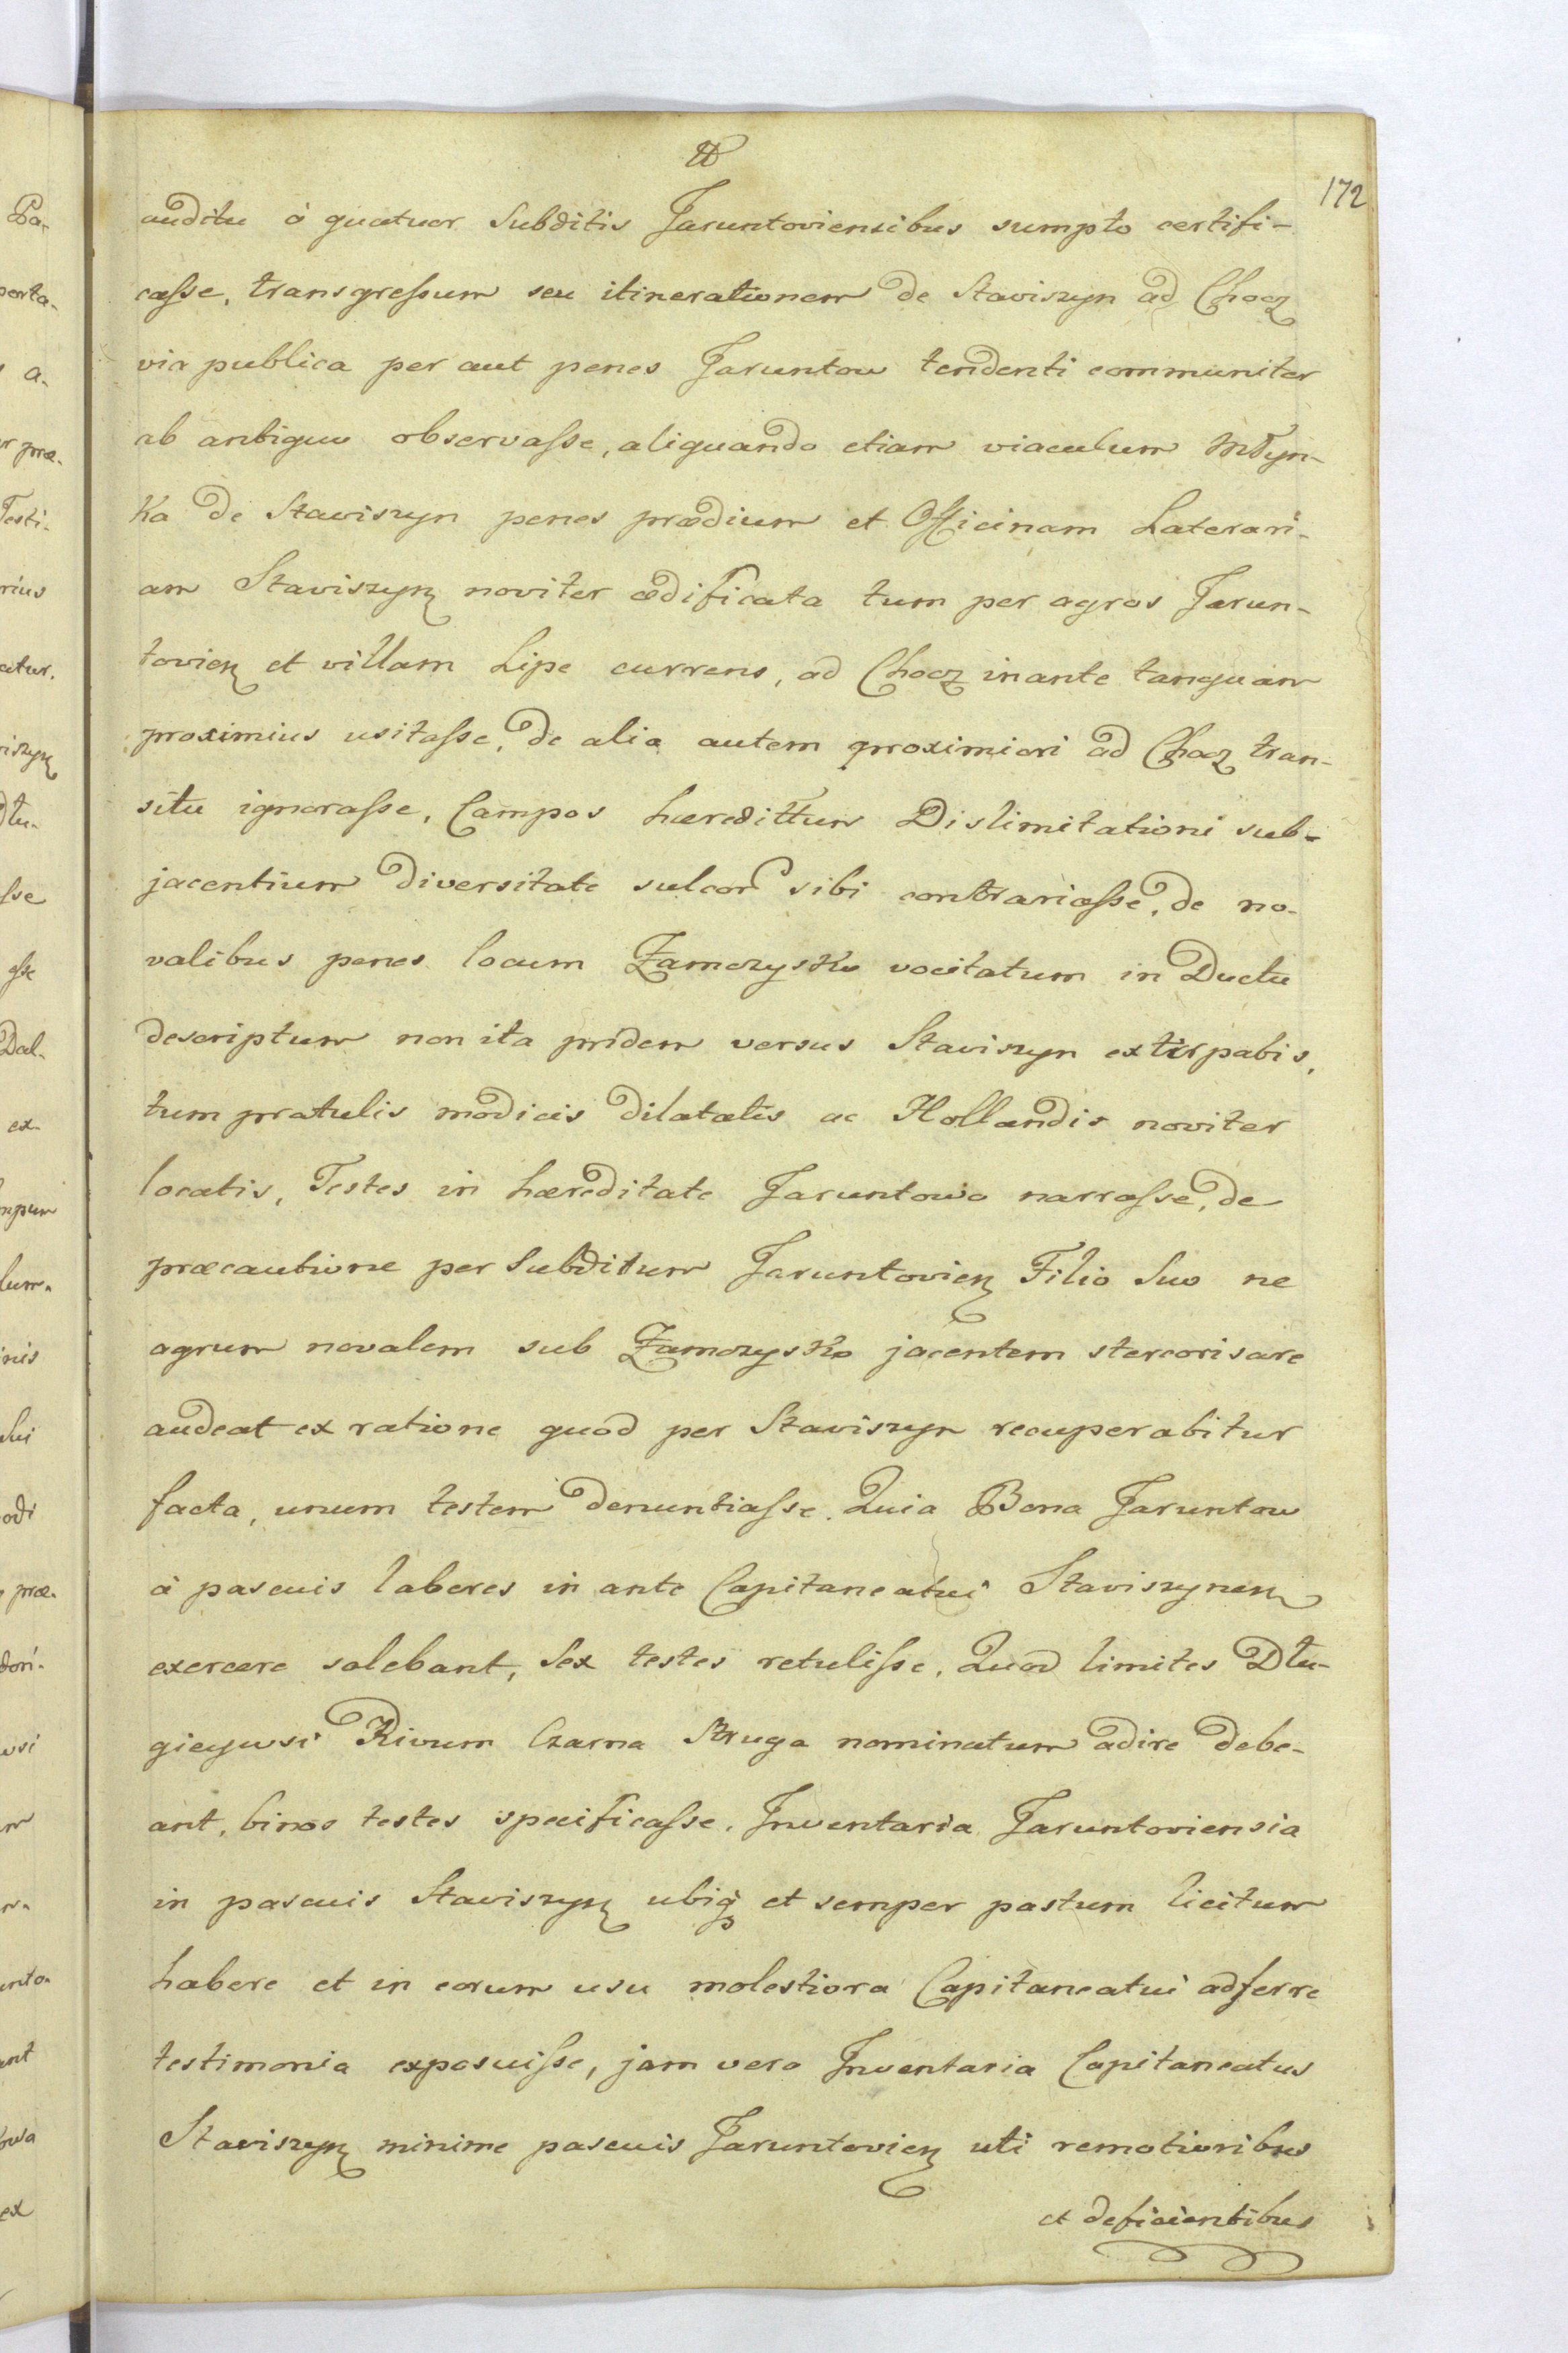 172
auditu à quatuor Subditis Jaruntoviensibus sumpto certifi-
casse, transgressum seu itinerationem de Staviszyn ad Chocz
via publica per aut penes Jaruntow tendenti communiter
ab antiquo observasse, aliquando etiam viaculum Młyn-
ka de Staviszyn penes prædium et Officinam Laterari-
am Staviszyn noviter ædificata tum per agros Jarun-
tovien et villam Lipe currens, ad Chocz inante tanquam
proximius usitasse, de alio autem proximiori ad Chocz tran-
situ ignorasse, Campos hæredittum Dislimitationi sub-
jacentium diversitate sulcor sibi contrariasse, de no-
valibus penes locum Zamczysko vocitatum in Ductu
descriptum non ita pridem versus Staviszyn extirpabis,
tum pratulis modicis dilatatis ac Hollandis noviter
locatis, Testes in hæreditate Jaruntowo narrasse, de
præcautione per Subditum Jaruntovien Filio Suo ne
agrum novalem sub Zamczysko jacentem stercorisare
audeat ex ratione quod per Staviszyn recuperabitur
facta, unum testem denuntiasse. Quia Bona Jaruntow
à pascuis labores in ante Capitaneatui Staviszynen
exercere solebant, Sex testes retulisse. Quod limites Dłu-
gieywsi Rivum Czarna Struga nominatum adire debe-
ant, binos testes specificasse. Inventaria Jaruntoviensia
in pascuis Staviszyn ubiq et semper pastum licitum
habere et in eorum usu molestiora Capitaneatui adferre
testimonia exposuisse, jam vero Inventaria Capitaneatus
Staviszyn minime pascuis Jaruntovien uti remotioribus
et deficientibus